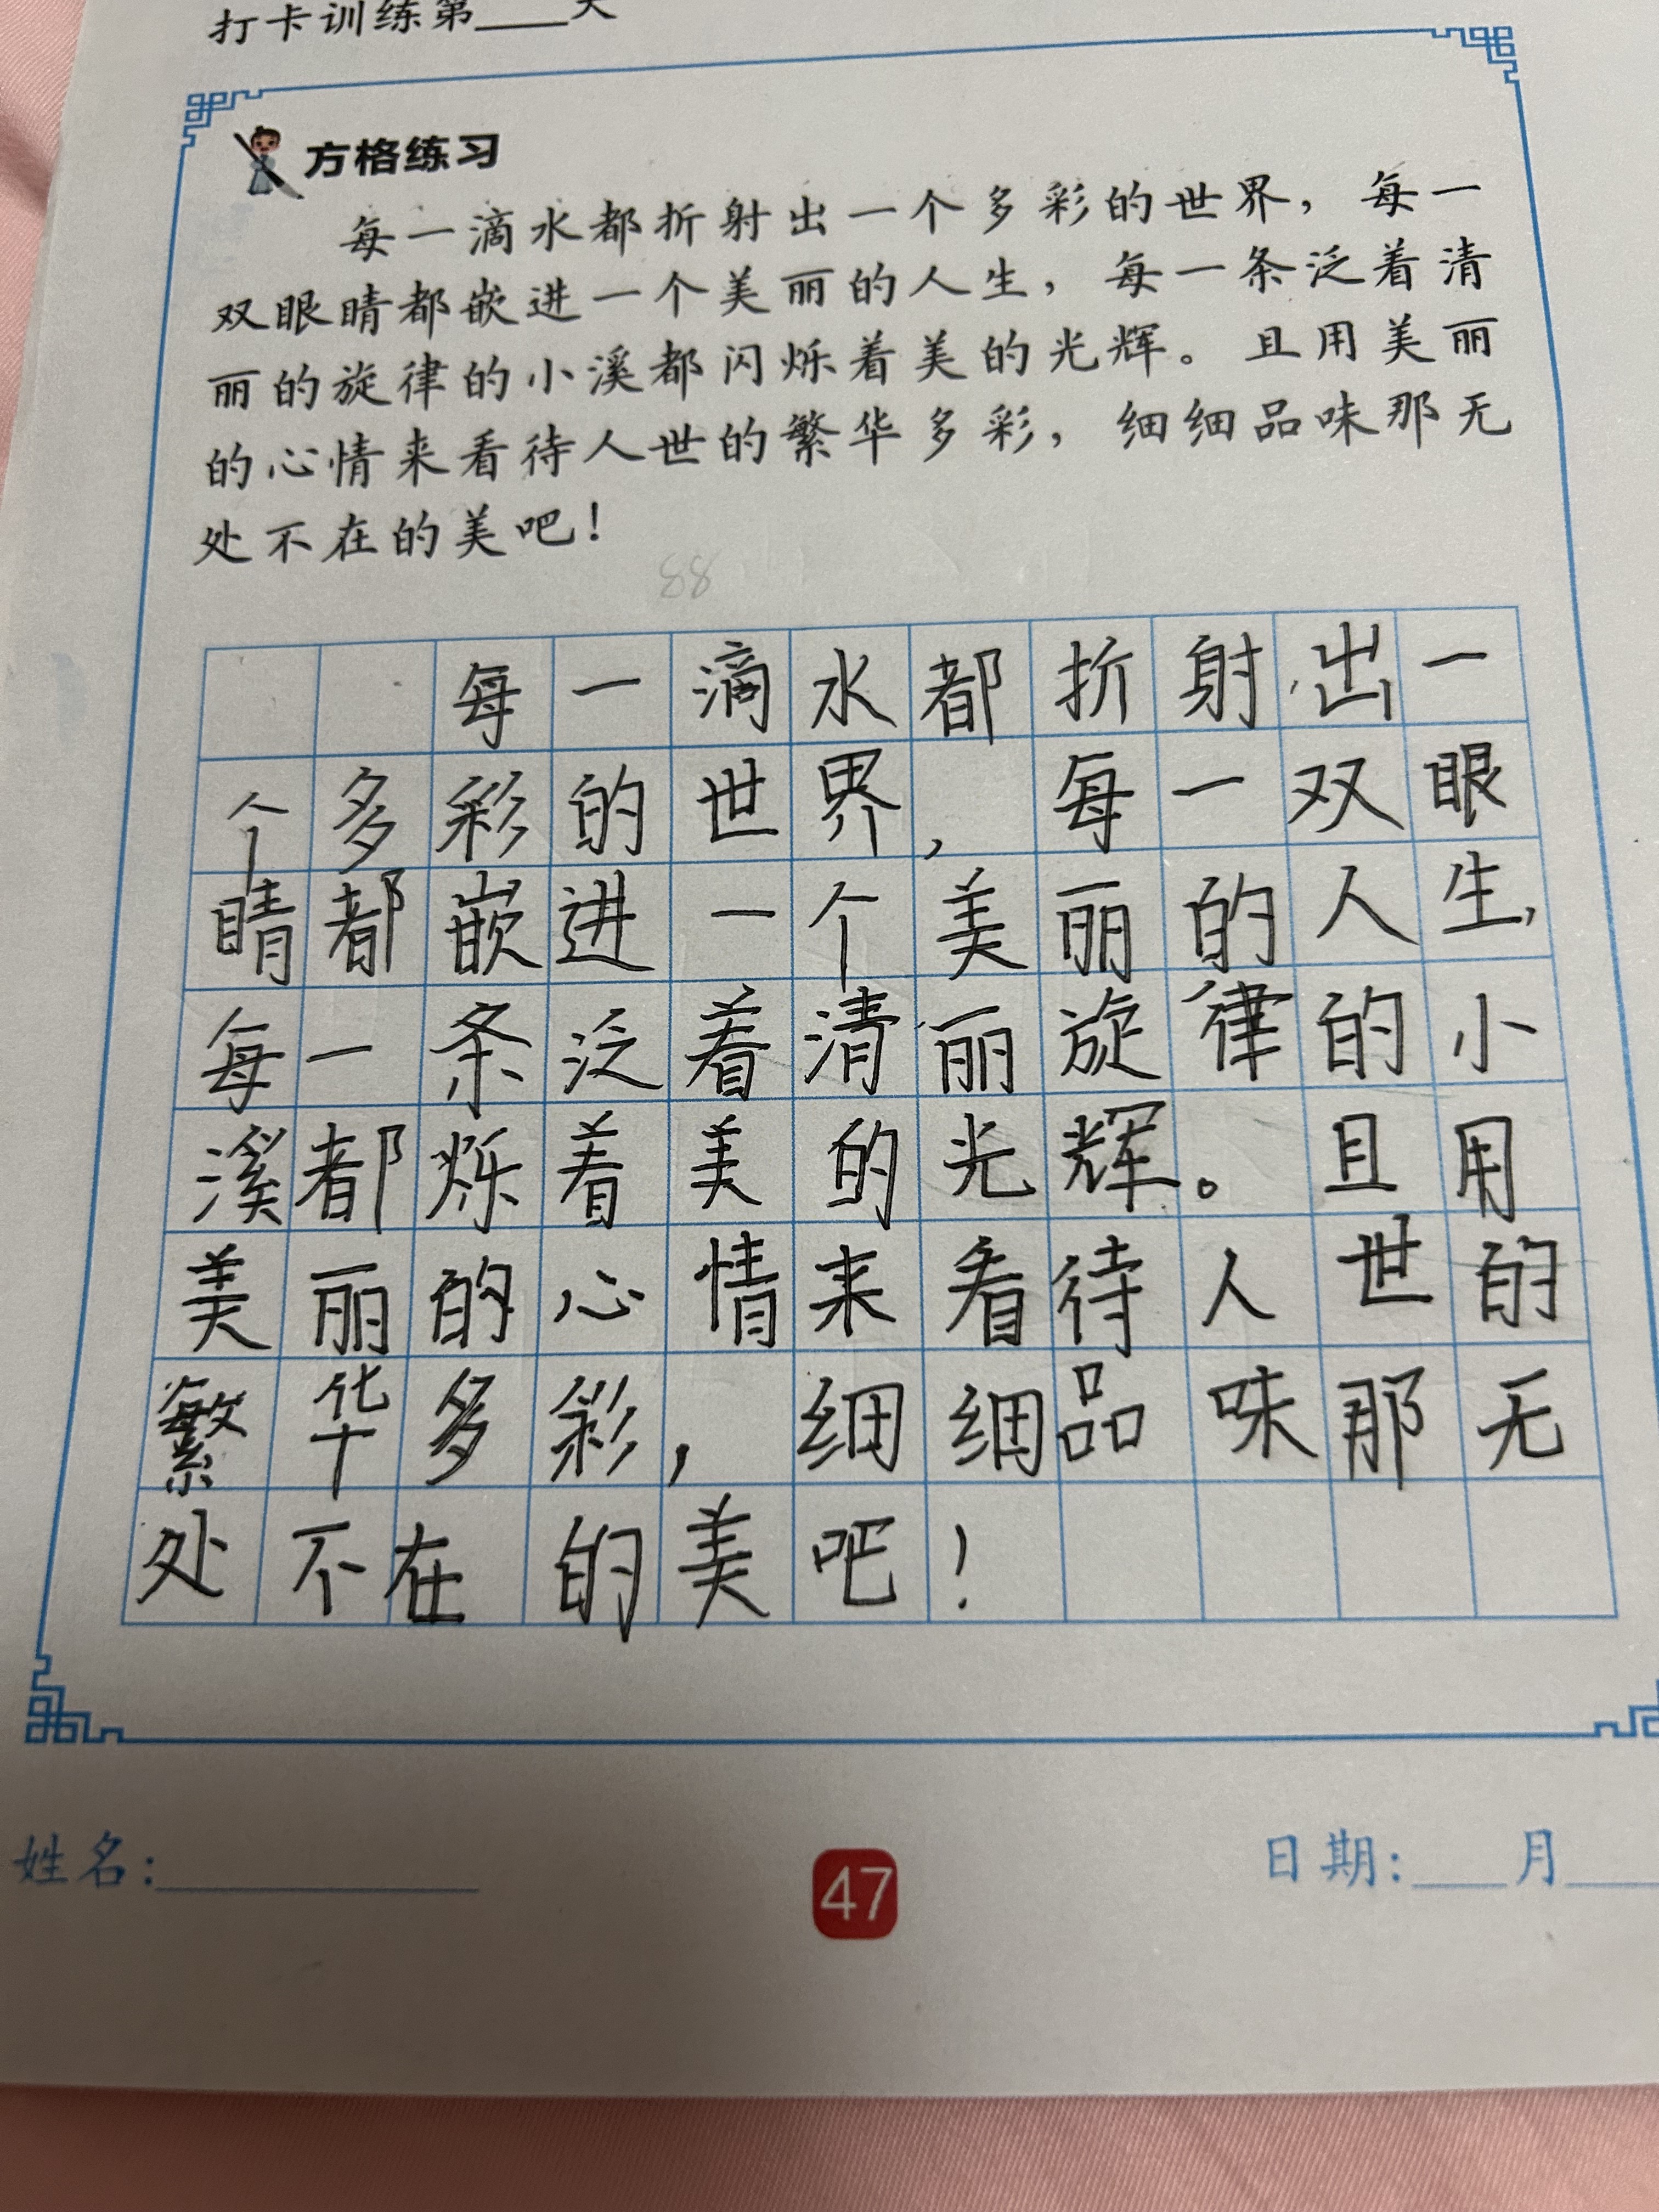 打卡训练第____天
方格练习
每一滴水都折射出一个多彩的世界，每一
双眼睛都嵌进一个美丽的人生，每一条泛着清
丽的旋律的小溪都闪烁着美的光辉。且用美丽
的心情来看待人世的繁华多彩，细细品味那无
处不在的美吧！
88
每一滴水都折射出一
个多彩的世界，每一双眼
睛都嵌进一个美丽的人生，
每一条泛着清丽旋律的小
溪都烁着美的光辉。且用
美丽的心情来看待人世的
繁华多彩，细细品味那无
处不在的美吧！
姓名：____________ 47 日期：____月____